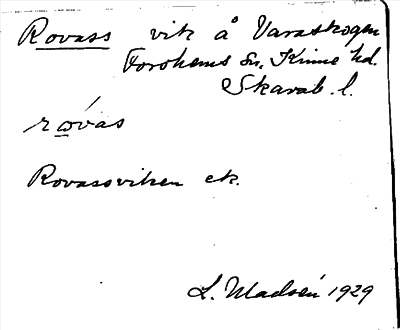 Rovass vik å Varaskogen
Forshems Sn. Kinne hd.
Skarab. l.
rωvas
Rovassviken ek.
L. Madsén 1929